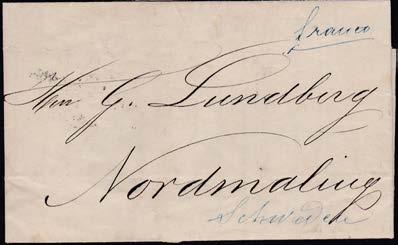 franco
Herrn G. Lundberg
Nordmaling
Schweden